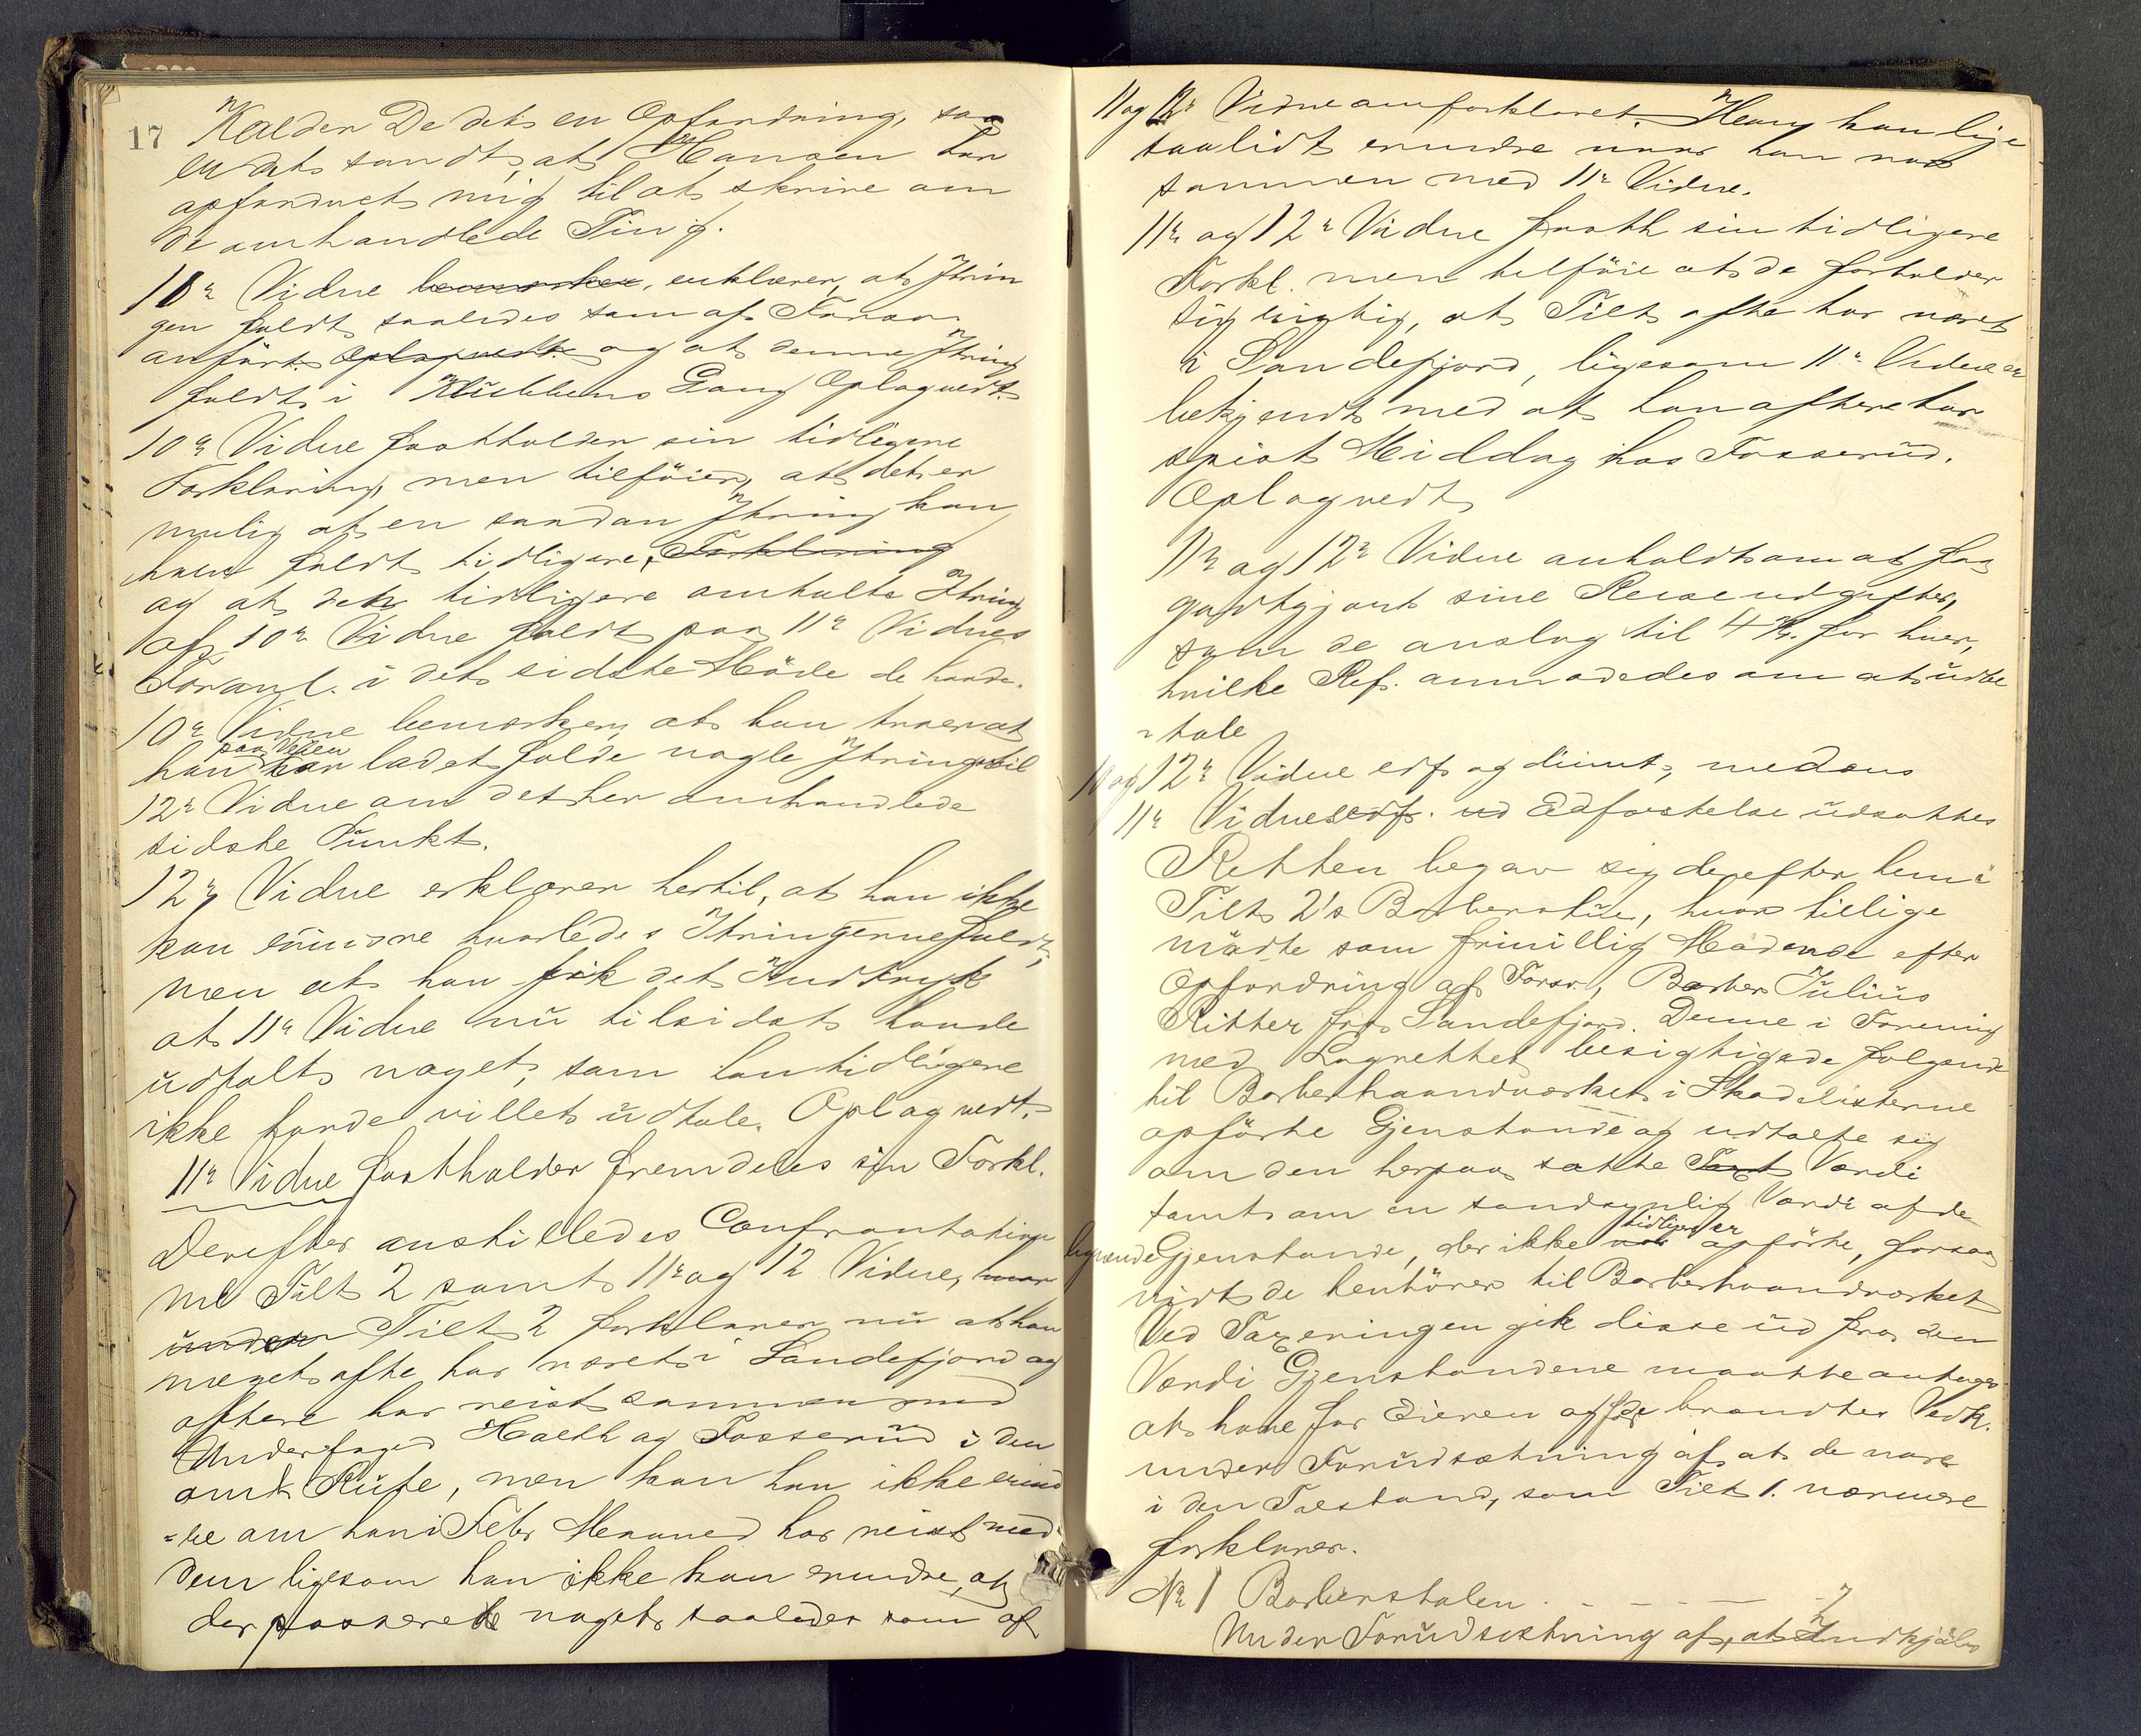 17
Kalder De det en Opfordring, saa
er det sandt, at Hansen har
opfordret mig til at skrive om
de omhandlede Ting.
10de Vidne bemærker, erklærer, at Ytrin
gen faldt saaledes som af Forsv.
anført. Oplæst vedt. og at denne Ytring
faldt i Klubbens Gang Oplæg vedt.
10de Vidne fastholder sin tidligere
Forklaring, men tilføier, at det er
mulig at en saadan Ytring kan
have faldt tidligere. Forklaring
og at den tidligere omtalte Ytring
af 10de Vidne faldt paa 11te Vidnes
Foranl. i det sidste Møde de havde.
10de Vidne bemærker, at han troer at
han paa Veien har ladet falde nogle Ytringer til
12te Vidne om det her omhandlede
sidste Punkt.
12te Vidne erklærer hertil, at han ikke
kan erindre hvorledes Ytringerne faldt,
men at han fik det Indtryk
at 11te Vidne nu tilsidst havde
udtalt noget, som han tidligere
ikke havde villet udtale. Oplag vedt.
11te Vidne fastholder fremdeles sin Forkl.
Derefter anstilledes Confrontation
ml Tilt 2 samt 11te og 12 Vidne,
under Tilt 2 forklarer nu at han
meget ofte har været i Sandefjord og
oftere har reist sammen med
Underfoged Holth og Fosserud i den
omt Rute, men kan han ikke erind
-re om han i Febr Maaned har reist med
dem ligesom han ikke kan erindre, at
der passerede noget saaledes som af
11 og 12te Vidne omforklaret. Han kan lige
saalidt erindre naar han var
sammen med 11te Vidne.
11te og 12te Vidne fasth sin tidligere
Forkl. men tilføie at de forholder
sig rigtig, at Tilt ofte har været
i Sandefjord, ligesom 11te Vidne er
bekjendt med at han oftere har
spist Middag hos Fosserud.
Oplag vedt
11te og 12te Vidne anholdt om at faa
godtgjort sine Reiseudgifter,
som de anslog til 4 Kr. for hver,
hvilke Ref. anmodedes om at udbe
-tale
10 og 12te Vidne edf og dimit, medens
11te Vidnes edf. ud Edfæstelse udsattes
Retten begav sig derefter hen i
Tilt 2's Barberstue, hvor tillige
mødte som frivillig Mødende efter
Opfordring af Forsv, Barber Julius
Ritter fra Sandefjord. Denne i Forening
med Lagrettet besigtigede følgende
til Barberhaandværket i Skadelisterne
opførte Gjenstande og udtalte sig
om den herpaa satte Taxt Værdi
samt om en sandsynlig Værdi af de
Gjenstande, der ikke var tidligere er opførte, forsaa
vidt de henhører til Barberhaandværket
Ved Taxeringen gik disse ud fra den
Værdi Gjenstandene maatte antages
at have for Eieren af de brændte Vedk.
under Forudsætning af at de vare
i den Tilstand, som Tilt 1. nærmere
forklarer.
No 1 Barberstolen . - - - - - - 7
Under Forudsætning af, at Indkjøbs